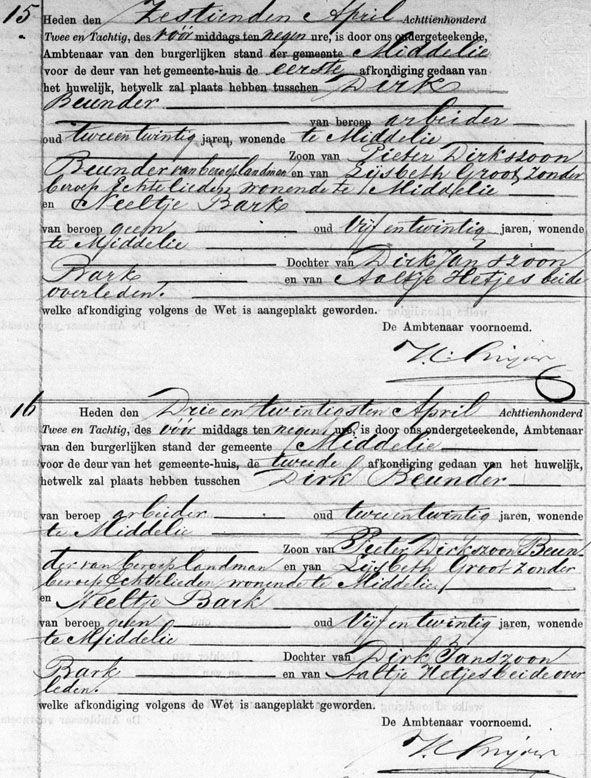 15 Heden den Zestienden April Achttienhonderd
Twee en Tachtig, des vóór middags ten negen ure, is door ons ondergeteekende,
Ambtenaar van den burgerlijken stand der gemeente Middelie
voor de deur van het gemeente-huis de eerste afkondiging gedaan van
het huwelijk, hetwelk zal plaats hebben tusschen Dirk
Beunder
van beroep arbeider
oud twee en twintig jaren, wonende te Middelie
Zoon van Pieter Dirkszoon
Beunder van beroep landman en van Lijsbeth Groot zonder
beroep Echtelieden wonende te Middelie
en Neeltje Bark
van beroep geen oud Vijf en twintig jaren, wonende
te Middelie
Dochter van Dirk Janszoon
Bark en van Aaltje Hetjes beide
overleden.
welke afkondiging volgens de Wet is aangeplakt geworden.
De Ambtenaar voornoemd.
16 Heden den Drie en twintigsten April Achttienhonderd
Twee en Tachtig, des vóór middags ten negen ure, is door ons ondergeteekende, Ambtenaar
van den burgerlijken stand der gemeente Middelie
voor de deur van het gemeente-huis, de tweede afkondiging gedaan van het huwelijk,
hetwelk zal plaats hebben tusschen Dirk Beunder
van beroep arbeider oud twee en twintig jaren, wonende
te Middelie
Zoon van Pieter Dirkszoon Beun-
der van beroep landman en van Lijsbeth Groot zonder
beroep Echtelieden wonende te Middelie
en Neeltje Bark
van beroep geen oud Vijf en twintig jaren, wonende
te Middelie
Dochter van Dirk Janszoon
Bark en van Aaltje Hetjes beide over
leden.
welke afkondiging volgens de Wet is aangeplakt geworden.
De Ambtenaar voornoemd.